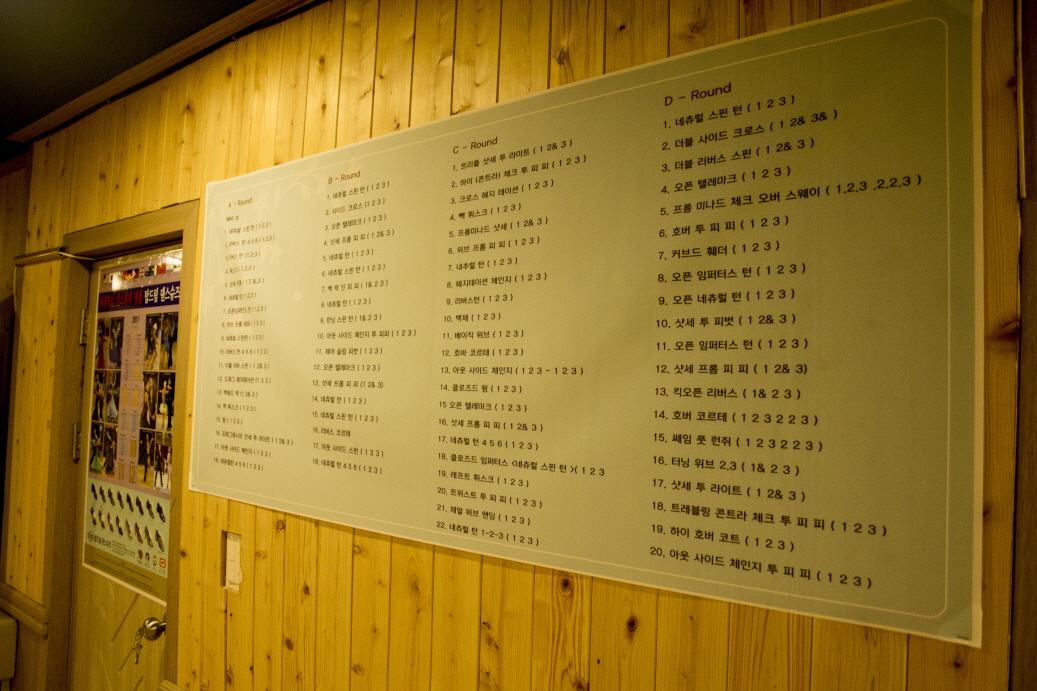 A - Round
1. 네츄럴 스핀 턴 ( 1 2 3 )
2. 리버스 턴 4 5 6 ( 1 2 3 )
10. 리버스 턴 4 5 6 ( 1 2 3 )
11. 더블 리버 스핀 ( 1 2& 3 )
14. 백 휘스크 ( 1 2 3 )
15. 윙 ( 1 2 3 )
16. 프로그레시브 샷세 투 라이트 ( 1 2& 3 )
17. 아웃 사이드 체인지 ( 1 2 3 )
18. 네츄럴턴 4 5 6 ( 1 2 3 )
B - Round
1. 네츄럴 스핀 턴 ( 1 2 3 )
2. 사이드 크로스 (1 2 3 )
3. 오픈 텔레마크 ( 1 2 3 )
4. 샷세 프롬 피 피 ( 1 2& 3 )
5. 네츄럴 턴 ( 1 2 3 )
6. 네츄럴 스핀 턴 ( 1 2 3 )
7. 백 락 인 피 피 ( 1& 2 3 )
8. 네츄럴 턴 ( 1 2 3 )
9. 런닝 스핀 턴 ( 1& 2 3 )
10. 아웃 사이드 체인지 투 피피 ( 1 2 3 )
11. 체어 슬립 피벗 ( 1 2 3 )
12. 오픈 텔레마크 ( 1 2 3 )
13. 샷세 프롬 피 피 (1 2& 3)
14. 네츄럴 턴 ( 1 2 3 )
15. 네츄럴 스핀 턴 ( 1 2 3 )
16. 리버스 코르테
17. 아웃 사이드 스핀 ( 1 2 3 )
18. 네츄럴 턴 4 5 6 ( 1 2 3 )
C - Round
1. 트리플 샷세 투 라이트 ( 1 2& 3 )
2. 하이 (콘트라) 체크 투 피 피 ( 1 2 3 )
3. 크로스 헤지 테이션 ( 1 2 3 )
4. 빽 휘스크 ( 1 2 3 )
5. 프롬미나드 샷세 ( 1 2& 3 )
6. 위브 프롬 피 피 ( 1 2 3 )
7. 내추럴 턴 ( 1 2 3 )
8. 헤지테이션 체인지 ( 1 2 3 )
9. 리버스턴 ( 1 2 3 )
10. 백페 ( 1 2 3 )
11. 베이직 위브 ( 1 2 3 )
12. 호바 코르테 ( 1 2 3 )
13. 아웃 사이드 체인지 ( 1 2 3 - 1 2 3 )
14. 클로즈드 웡 ( 1 2 3 )
15 오픈 텔레마크 ( 1 2 3 )
16. 샷세 프롬 피 피 ( 1 2& 3 )
17. 네츄럴 턴 4 5 6 ( 1 2 3 )
18. 클로즈드 임퍼터스 <네츄럴 스핀 턴 >( 1 2 3
19. 레프트 휘스크 ( 1 2 3 )
20. 트위스트 투 피 피 ( 1 2 3 )
21. 체얼 위브 앤딩 ( 1 2 3 )
22. 네츄럴 턴 1-2-3 ( 1 2 3 )
D - Round
1. 네츄럴 스핀 턴 ( 1 2 3 )
2. 더블 사이드 크로스 ( 1 2& 3& )
3. 더블 리버스 스핀 ( 1 2& 3 )
4. 오픈 탤레마크 ( 1 2 3 )
5. 프롬 미나드 체크 오버 스웨이 ( 1.2.3 .2.2.3 )
6. 호버 투 피 피 ( 1 2 3 )
7. 커브드 훼더 ( 1 2 3 )
8. 오픈 임퍼터스 턴 ( 1 2 3 )
9. 오픈 네츄럴 턴 ( 1 2 3 )
10. 샷세 투 피벗 ( 1 2& 3 )
11. 오픈 임퍼터스 턴 ( 1 2 3 )
12. 샷세 프롬 피 피 ( 1 2& 3)
13. 킥오픈 리버스 ( 1& 2 3 )
14. 호버 코르테 ( 1 2 3 2 2 3 )
15. 쎄임 풋 런쥐 ( 1 2 3 2 2 3 )
16. 터닝 위브 2,3 ( 1& 2 3 )
17. 샷세 투 라이트 ( 1 2& 3 )
18. 트레블링 콘트라 체크 투 피 피 ( 1 2 3 )
19. 하이 호버 코트 ( 1 2 3 )
20. 아웃 사이드 체인지 투 피 피 ( 1 2 3 )
2011